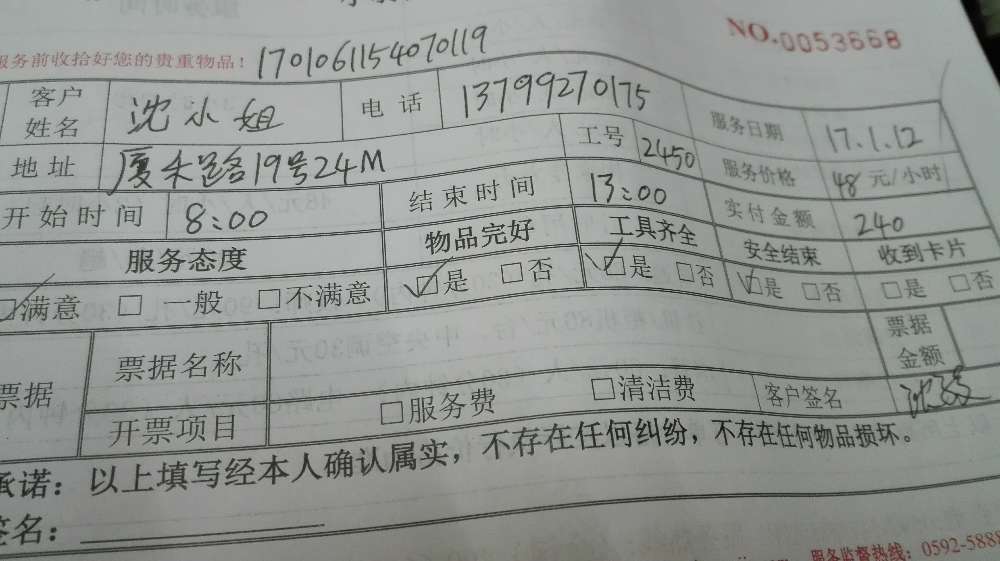 NO.0053668
服务前收拾好您的贵重物品! 1701061154070119
客户姓名 沈小姐 电话 13799270175 服务日期 17.1.12
地址 厦禾路19号24M 工号 2450 服务价格 48元/小时
开始时间 8:00 结束时间 13:00 实付金额 240
服务态度 物品完好 工具齐全 安全结束 收到卡片
☑满意 □一般 □不满意 ☑是 □否 ☑是 □否 ☑是 □否 □是 □否
票据 票据名称 票据金额
开票项目 □服务费 □清洁费 客户签名
承诺:以上填写经本人确认属实,不存在任何纠纷,不存在任何物品损坏。
签名:
服务监督热线:0592-5888